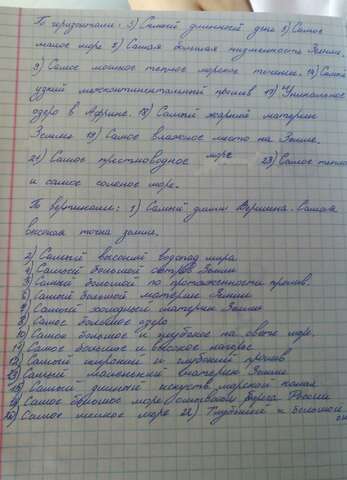 По горизонтали: 3) Самый длинный день 5) Самое
малое море 8) Самая большая низменность Земли.
9) Самое мощное теплое морское течение. 14) Самый
узкий межконтинентальный пролив 17) Уникальное
озеро в Африке. 18) Самый жаркий материк
Земли 19) Самое влажное место на Земле.
21) Самое пресноводное море 23) Самое теплое
и самое соленое море.
По вертикали: 1) Самый длинн Вершина. Самая
высокая точка земли.
2) Самый высокий водопад мира
4) Самый большой остров Земли
5) Самый большой по протяженности пролив.
6) Самый большой материк Земли
7) Самый холодный материк Земли
8) Самое большое озеро
10) Самое большое и глубокое на свете мор.
11) Самое большое и высокое нагорье
12) Самый широкий и глубокий пролив
13) Самый маленький материк Земли
15) Самый длинный искуств морской канал
16) Самое большое море омываюш берега России
20) Самое мелкое море 22) Глубокий и большой